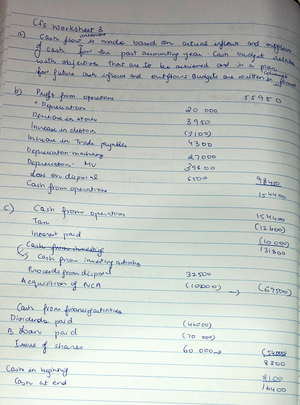 CFs Worksheet 3
a) Cash flow is made based on actual inflows and outflows
of cash for the past accounting year. Cash budget relates
with objectives that are to be achieved and is a plan
for future cash inflows and outflows. Budgets are written in
b) Profit from operations 55950
+ Depreciation 20 000
Decrease in stock 3950
Increase in debtors (2100)
Increase in Trade payables 4300
Depreciation machinery 27000
Depreciation - MV 39800
Loss on disposal 5500 98450
Cash from operations 154400
c) Cash from operation 154400
Tax (12600)
Interest paid (10 000)
131800
Cash from investing
Cash from investing activities
Proceeds from disposal 32500
Acquisition of NCA → (69500)
Cash from financing activities
Dividends paid (44000)
B. Loan paid (70 000)
Issue of shares 60 000 → (54000)
8300
Cash in beginning 8100
Cash at end 16400